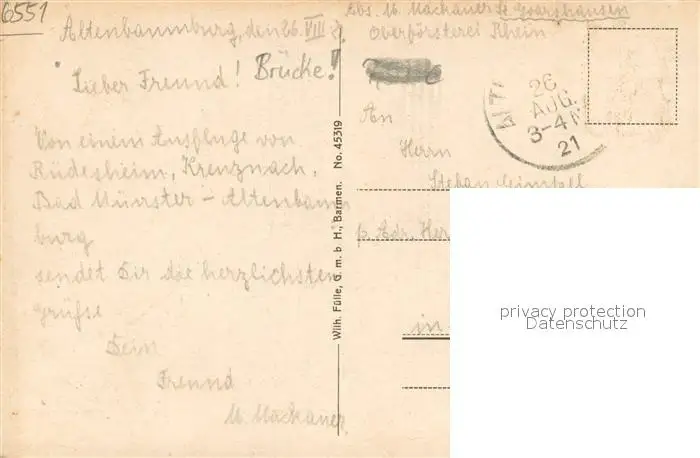 6551
Altenbaumburg, den 26. VIII 21
Lieber Freund! Brücke!
Von einem Ausfluge von
Rüdesheim, Kreuznach,
Bad Münster – Altenbaum-
burg
sendet Dir die herzlichsten
Grüße
Dein
Freund
M. Mackauer
Wilh. Fülle, G. m. b H., Barmen. No. 45319
Abs. M. Mackauer St Goarshausen
Oberförsterei Rhein
26
AUG.
3-4 N
21
An
Herrn
Stefan
p. Adr. Her
in
privacy protection
Datenschutz